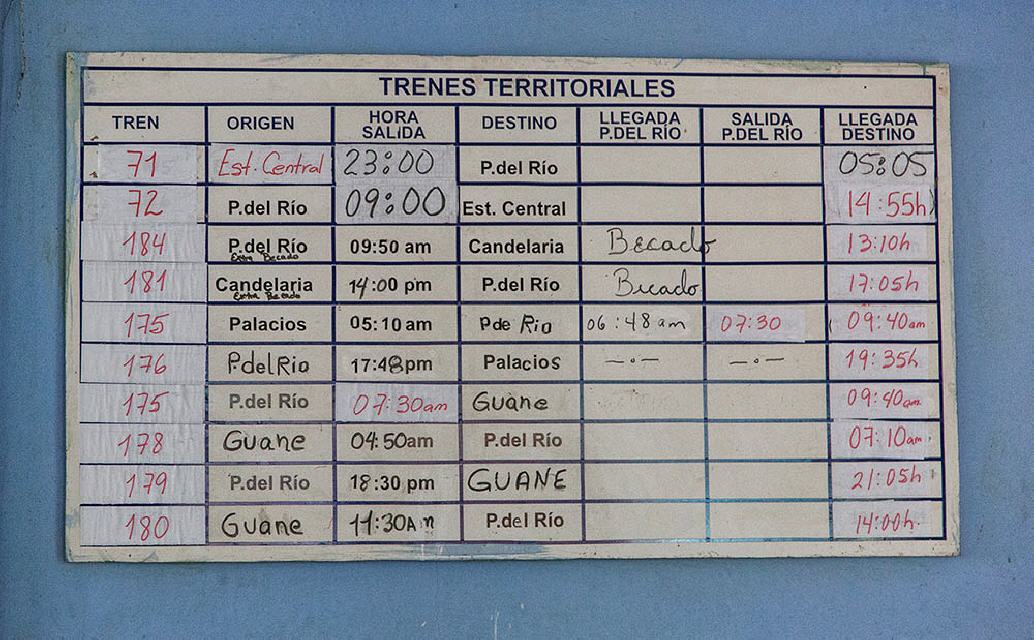 TRENES TERRITORIALES
TREN ORIGEN HORA SALIDA DESTINO LLEGADA P.DEL RÍO SALIDA P.DEL RÍO LLEGADA DESTINO
71 Est. Central 23:00 P.del Río 05:05
72 P.del Río 09:00 Est. Central 14:55h
184 P.del Río Extra Becado 09:50 am Candelaria Becado 13:10h
181 Candelaria Extra Becado 14:00 pm P.del Río Becado 17:05h
175 Palacios 05:10 am P de Río 06:48 am 07:30 09:40am
176 P.del Río 17:48pm Palacios —·— —·— 19:35h
175 P.del Río 07:30am Guane 09:40am
178 Guane 04:50am P.del Río 07:10am
179 P.del Río 18:30 pm GUANE 21:05h
180 Guane 11:30Am P.del Río 14:00h.